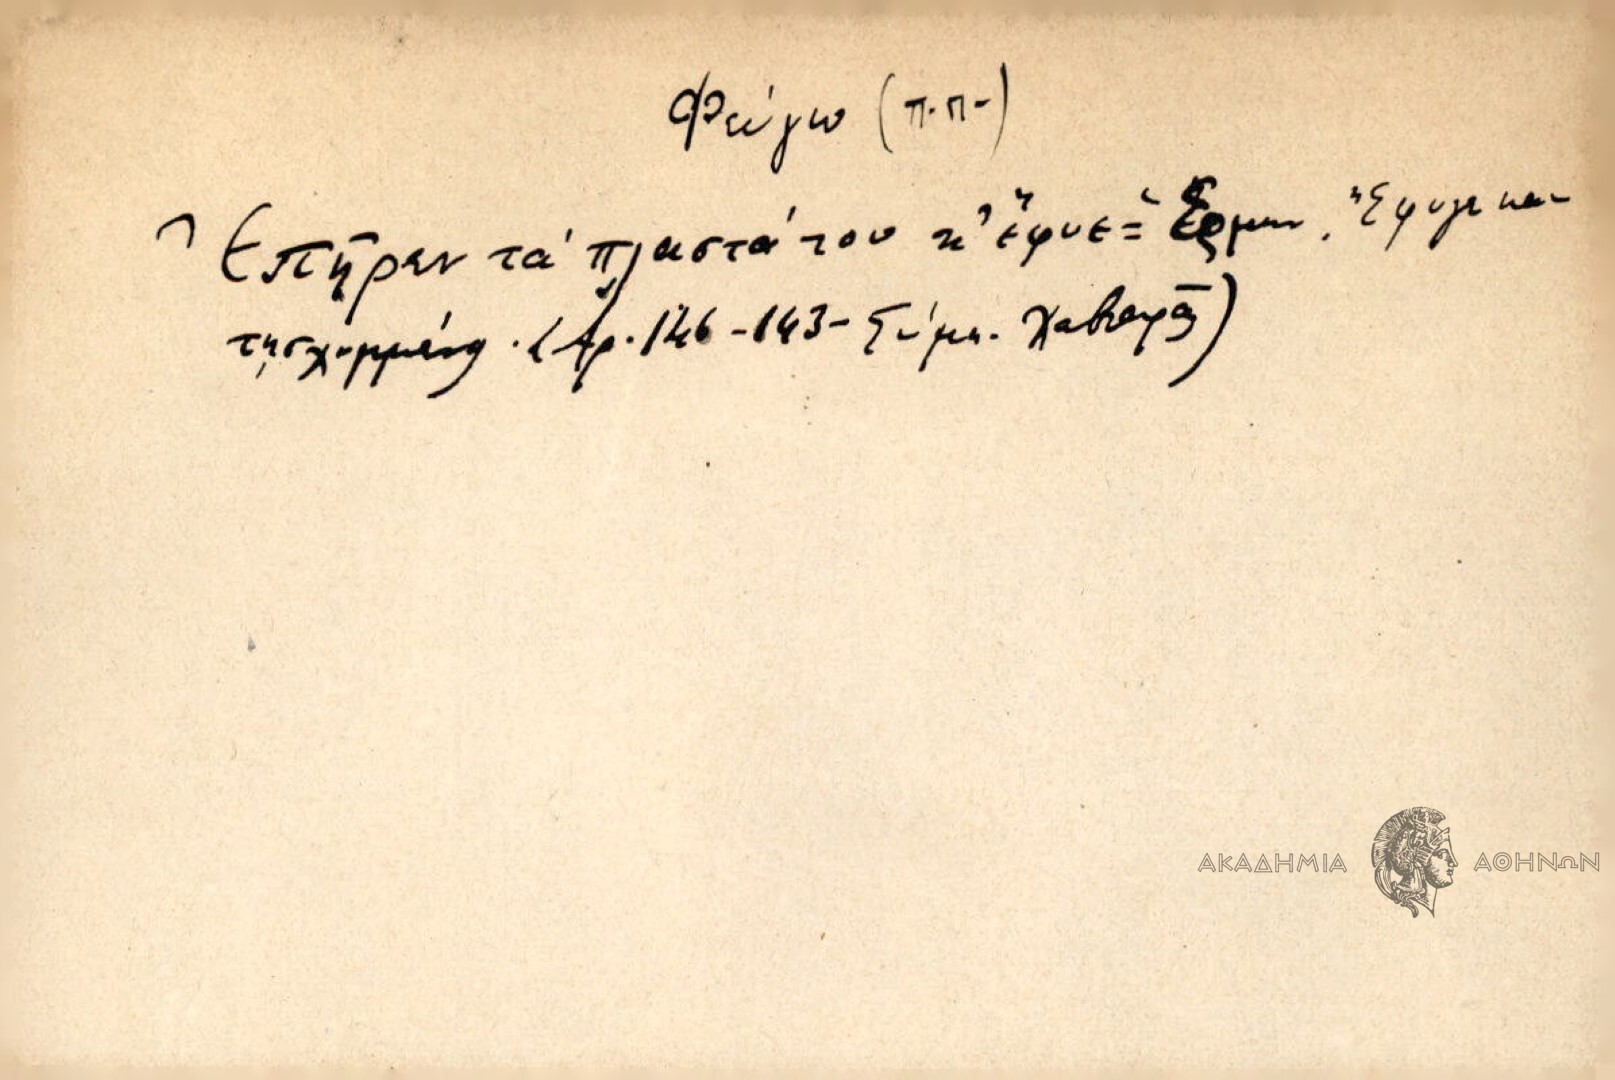 Φεύγω (π.π-)
Ἐπῆρεν τά πλαστά του κ' ἔφυε = Ἑρμην. Ἔφυγε κα-
τησχυμμένος. (Αρ. 146-143- Σύμη. Χαβιαρᾶς)
ΑΚΑΔΗΜΙΑ ΑΘΗΝΩΝ